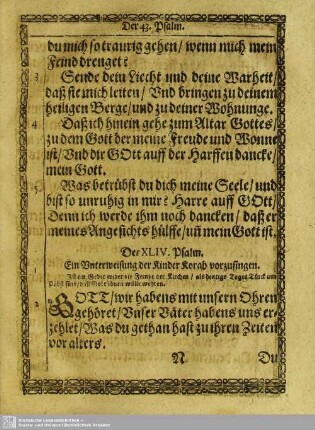 Der 43. Psalm.
du mich so traurig gehen / wenn mich mein
Feind drenget?
3 Sende dein Liecht und deine Warheit /
daß sie mich leiten / Vnd bringen zu deinem
heiligen Berge / und zu deiner Wohnunge.
4 Daß ich hinein gehe zum Altar Gottes /
zu dem Gott der meine Freude und Wonne
ist / Vnd dir GOtt auff der Harffen dancke /
mein Gott.
5 Was betrübst du dich meine Seele / und
bist so unruhig in mir? Harre auff GOtt /
Denn ich werde ihm noch dancken / daß er
meines Angesichts hülffe / uñ mein Gott ist.
Der XLIV. Psalm.
Ein Vnterweisung der Kinder Korah vorzusingen.
Ist ein Gebet wider die Feinde der Kirchen / als heutigs Tages Türck und
Pabst sind / daß Gott ihnen wolle wehren.
2 GOTT / wir habens mit unsern Ohren
gehöret / Vnser Väter habens uns er-
zehlet / Was du gethan hast zu ihren Zeiten
vor alters.
N Du
Sächsische Landesbibliothek -
Staats- und Universitätsbibliothek Dresden